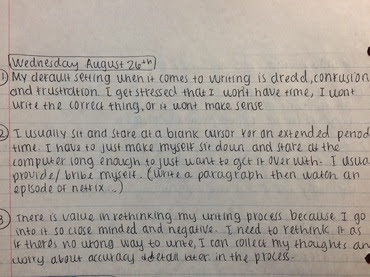 Wednesday August 26th
1) My default setting when it comes to writing is dredd, confusion
and frustration. I get stressed that I wont have time, I wont
write the correct thing, or it wont make sense
2) I usually sit and stare at a blank cursor for an extended period
time. I have to just make myself sit down and stare at the
computer long enough to just want to get it over with. I usua
provide/bribe myself. (write a paragraph then watch an
episode of netflix...)
3) There is value in rethinking my writing process because I go
into it so close minded and negative. I need to rethink it as
if there's no wrong way to write, I can collect my thoughts an
worry about accuracy & detail later in the process.